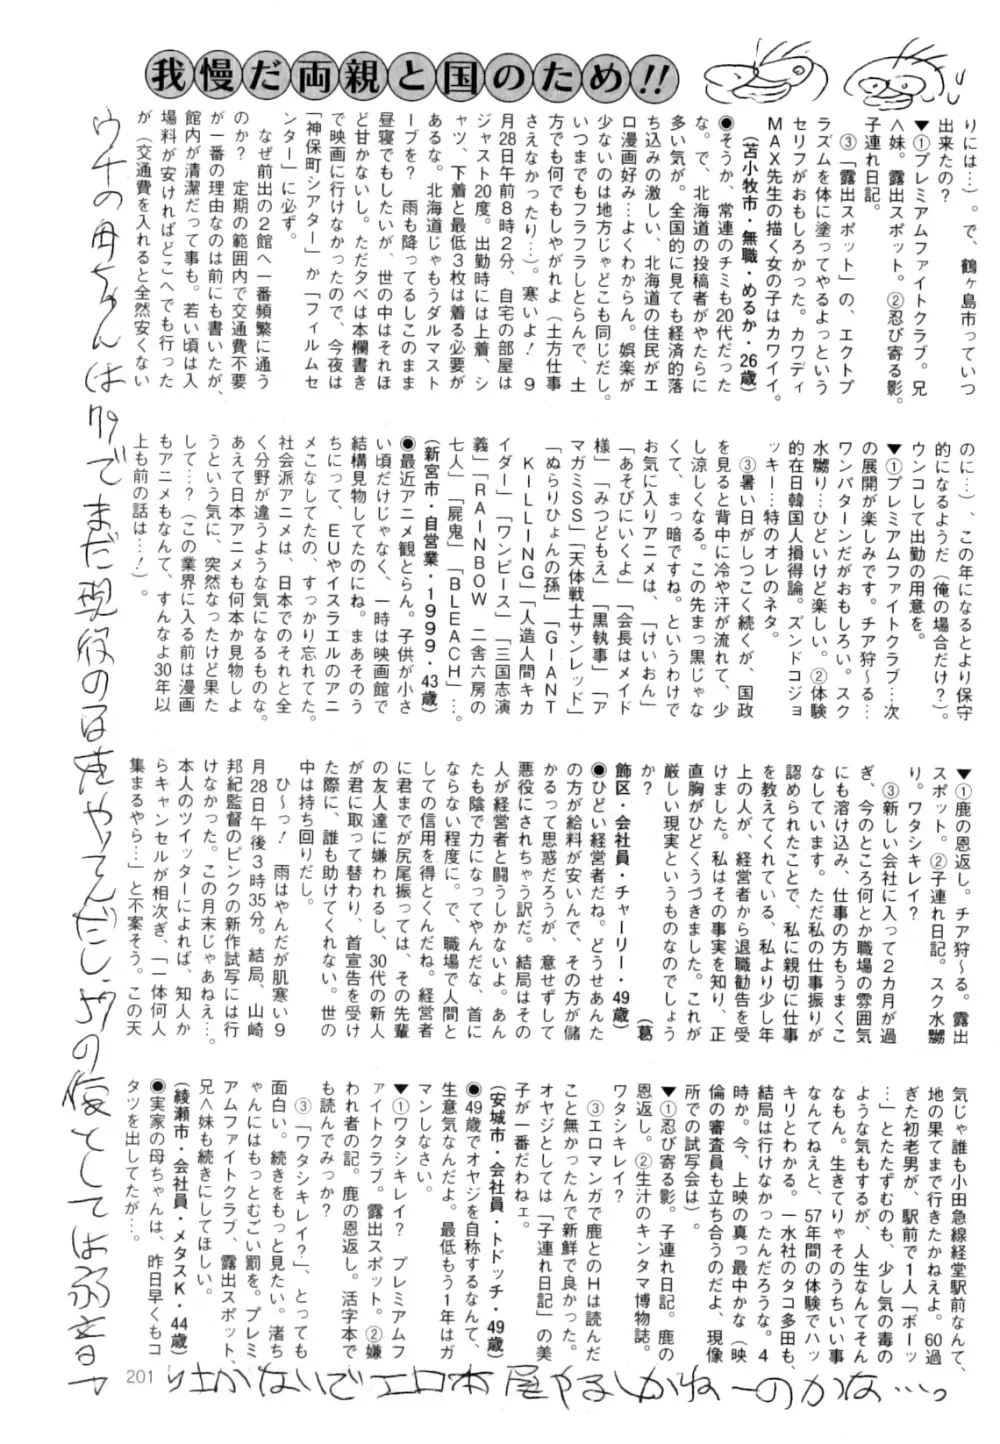 我慢だ両親と国のため!!
りには…)。で、鶴ヶ島市っていつ
出来たの?
▼①プレミアムファイトクラブ。兄
〈妹。露出スポット。②忍び寄る影。
子連れ日記。
③「露出スポット」の、エクトプ
ラズムを体に塗ってやるよっという
セリフがおもしろかった。カワディ
MAX先生の描く女の子はカワイイ。
(苫小牧市・無職・めるか・26歳)
●そうか、常連のチミも20代だった
な。で、北海道の投稿者がやたらに
多い気が。全国的に見ても経済的落
ち込みの激しい、北海道の住民がエ
ロ漫画好み…よくわからん。娯楽が
少ないのは地方じゃどこも同じだし。
いつまでもフラフラしとらんで、土
方でも何でもしやがれ(土方仕事
さえなかったり…)。寒いよ! 9
月28日午前8時2分、自宅の部屋は
ジャスト20度。出勤時には上着、シ
ャツ、下着と最低3枚は着る必要が
あるな。北海道じゃもうダルマスト
ーブを? 雨も降ってるしこのまま
昼寝でもしたいが、世の中はそれほ
ど甘かないし。ただ夕べは本欄書き
で映画に行けなかったので、今夜は
「神保町シアター」か「フィルムセ
ンター」に必ず。
なぜ前出の2館へ一番頻繁に通う
のか? 定期の範囲内で交通費不要
が一番の理由なのは前にも書いたが、
館内が清潔だって事も。若い頃は入
場料が安ければどこへでも行った
が(交通費を入れると全然安くない
のに…)、この年になるとより保守
的になるようだ(俺の場合だけ?)。
ウンコして出勤の用意を。
▼①プレミアムファイトクラブ…次
の展開が楽しみです。チア狩〜る…
ワンパターンだがおもしろい。スク
水嬲り…ひどいけど楽しい。②体験
的在日韓国人損得論。ズンドコジョ
ッキー…特のオレのネタ。
③暑い日がしつこく続くが、国政
を見ると背中に冷や汗が流れて、少
し涼しくなる。この先まっ黒じゃな
くて、まっ暗ですね。というわけで
お気に入りアニメは、「けいおん」
「あそびにいくよ」「会長はメイド
様」「みつどもえ」「黒執事」「ア
マガミSS」「天体戦士サンレッド」
「ぬらりひょんの孫」「GIANT
KILLING」「人造人間キカ
イダー」「ワンピース」「三国志演
義」「RAINBOW 二舎六房の
七人」「屍鬼」「BLEACH」…。
(新宮市・自営業・1999・43歳)
●最近アニメ観とらん。子供が小さ
い頃だけじゃなく、一時は映画館で
結構見物してたのにね。まあそのう
ちにって、EUやイスラエルのアニ
メこなしてたの、すっかり忘れてた。
社会派アニメは、日本でのそれと全
く分野が違うような気になるものな。
あえて日本アニメも何本か見物しよ
うという気に、突然なったけど果た
して…?(この業界に入る前は漫画
もアニメもなんて、すんなよ30年以
上も前の話は…!)。
▼①鹿の恩返し。チア狩〜る。露出
スポット。②子連れ日記。スク水嬲
り。ワタシキレイ?
③新しい会社に入って2カ月が過
ぎ、今のところ何とか職場の雰囲気
にも溶け込み、仕事の方もうまくこ
なしています。ただ私の仕事振りが
認められたことで、私に親切に仕事
を教えてくれている、私より少し年
上の人が、経営者から退職勧告を受
けました。私はその事実を知り、正
直胸がひどくうづきました。これが
厳しい現実というものなのでしょう
か?
(葛
飾区・会社員・チャーリー・49歳)
●ひどい経営者だね。どうせあんた
の方が給料が安いんで、その方が儲
かるって思惑だろうが、意せずして
悪役にされちゃう訳だ。結局はその
人が経営者と闘うしかないよ。あん
たも陰で力になってやんだな、首に
ならない程度に。で、職場で人間と
しての信用を得とくんだね。経営者
に君までが尻尾振っては、その先輩
の友人達に嫌われるし、30代の新人
が君に取って替わり、首宣告を受け
た際に、誰も助けてくれない。世の
中は持ち回りだし。
ひ〜っ! 雨はやんだが肌寒い9
月28日午後3時35分。結局、山崎
邦紀監督のピンクの新作試写には行
けなかった。この月末じゃあねえ…。
本人のツイッターによれば、知人か
らキャンセルが相次ぎ、「一体何人
集まるやら…」と不案そう。この天
気じゃ誰も小田急線経堂駅前なんて、
地の果てまで行きたかねえよ。60過
ぎた初老男が、駅前で1人「ボーッ
…」とたたずむのも、少し気の毒の
ような気もするが、人生なんてそん
なもん。生きてりゃそのうちいい事
なんてねえと、57年間の体験でハッ
キリとわかる。一水社のタコ多田も、
結局は行けなかったんだろうな。4
時か。今、上映の真っ最中かな(映
倫の審査員も立ち合うのだよ、現像
所での試写会は)。
▼①忍び寄る影。子連れ日記。鹿の
恩返し。②生汁のキンタマ博物誌。
ワタシキレイ?
③エロマンガで鹿とのHは読んだ
こと無かったんで新鮮で良かった。
オヤジとしては「子連れ日記」の美
子が一番だわねェ。
(安城市・会社員・トドッチ・49歳)
●49歳でオヤジを自称するなんて、
生意気なんだよ。最低もう1年はガ
マンしなさい。
▼①ワタシキレイ? プレミアムフ
ァイトクラブ。露出スポット。②嫌
われ者の記。鹿の恩返し。活字本で
も読んでみっか?
③「ワタシキレイ?」、とっても
面白い。続きをもっと見たい。渚ち
ゃんにはもっとむごい罰を。プレミ
アムファイトクラブ、露出スポット、
兄〈妹も続きにしてほしい。
(綾瀬市・会社員・メタスK・44歳)
●実家の母ちゃんは、昨日早くもコ
タツを出してたが…。
ウチの母ちゃんは79でまだ現役の百姓やってんだし、57の俺としては弱音一つ
吐かないでエロ本屋やるしかねーのかな…っ
201